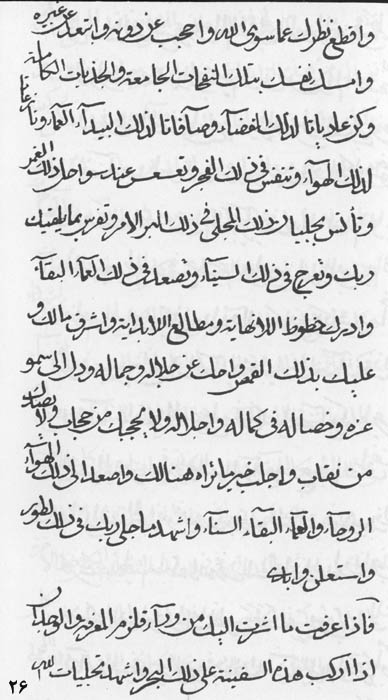 واقطع نظرك عما سوى الله واحجب عن دونه وابتعد عن غيره
وامسك نفسك بتلك النفحات الجامعة والجذبات الكاملة
وكن عاديانا لذلك الفضاء وصافاتا لذلك البيداء العماء ونازعا
لذلك الهوآء وتنفس في ذلك الفجر وتعسعس عند سواحل ذلك الغمر
وتأنس بجليات ذلك المجلى في ذلك السر الامر وتفرس بما يلقيك
ربك وتعرج في ذلك السيناء وتصعد في ذلك العماء البقاء
وادرك حظوظ اللانهاية ومطالع الابداية واشرق مالك و
عليك بذلك القمص واحك عن جلاله وجماله ودل الى سمو
عزه وخصاله في كماله واجلاله ولا يحجبك من حجاب ولا يصدك
من نقاب واجلب خير ازاه هنالك واصعد الى ذلك الهوآء
الروحاء والعماء البقاء السناء واشهد ما جلى ربك في ذلك الطور
واستعلن وابد
فاذا عرفت ما اشرقت اليك من ورآء قلزم المعرفة والوجد
اذا اركب هذه السفينة على ذلك البحر واشهد تجليات الله
٢۶